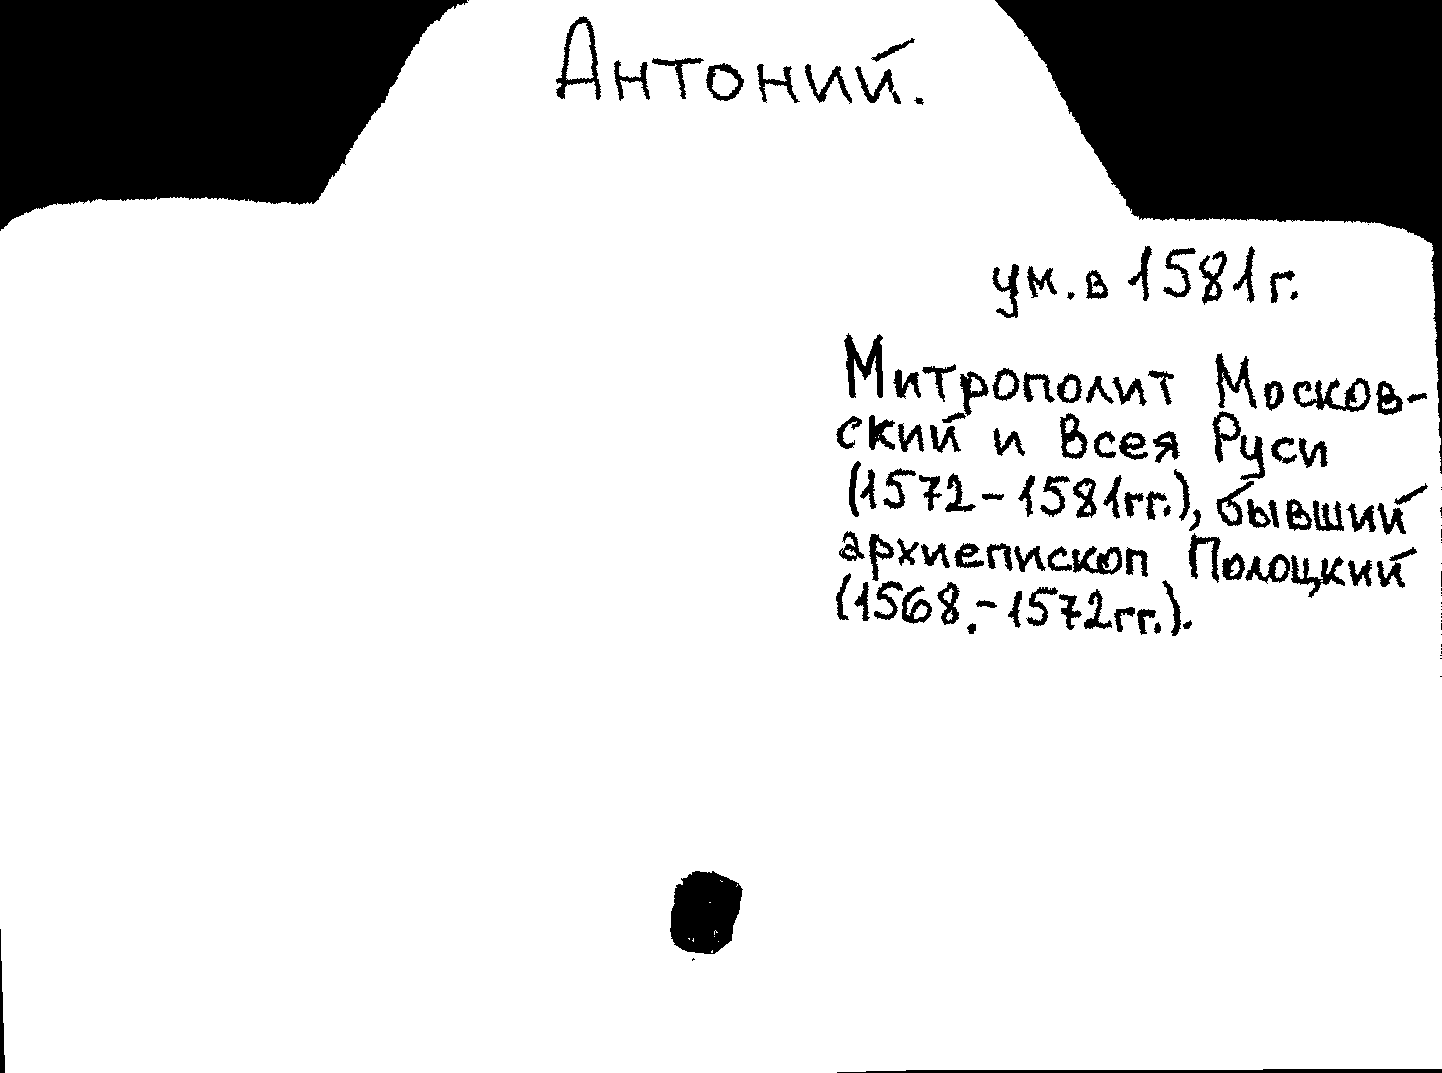 Антоний.
ум. в 1581 г.
Митрополит Москов-
ский и Всея Руси
(1572-1581гг.), бывший
архиепископ Полоцкий
(1568.-1572гг.).